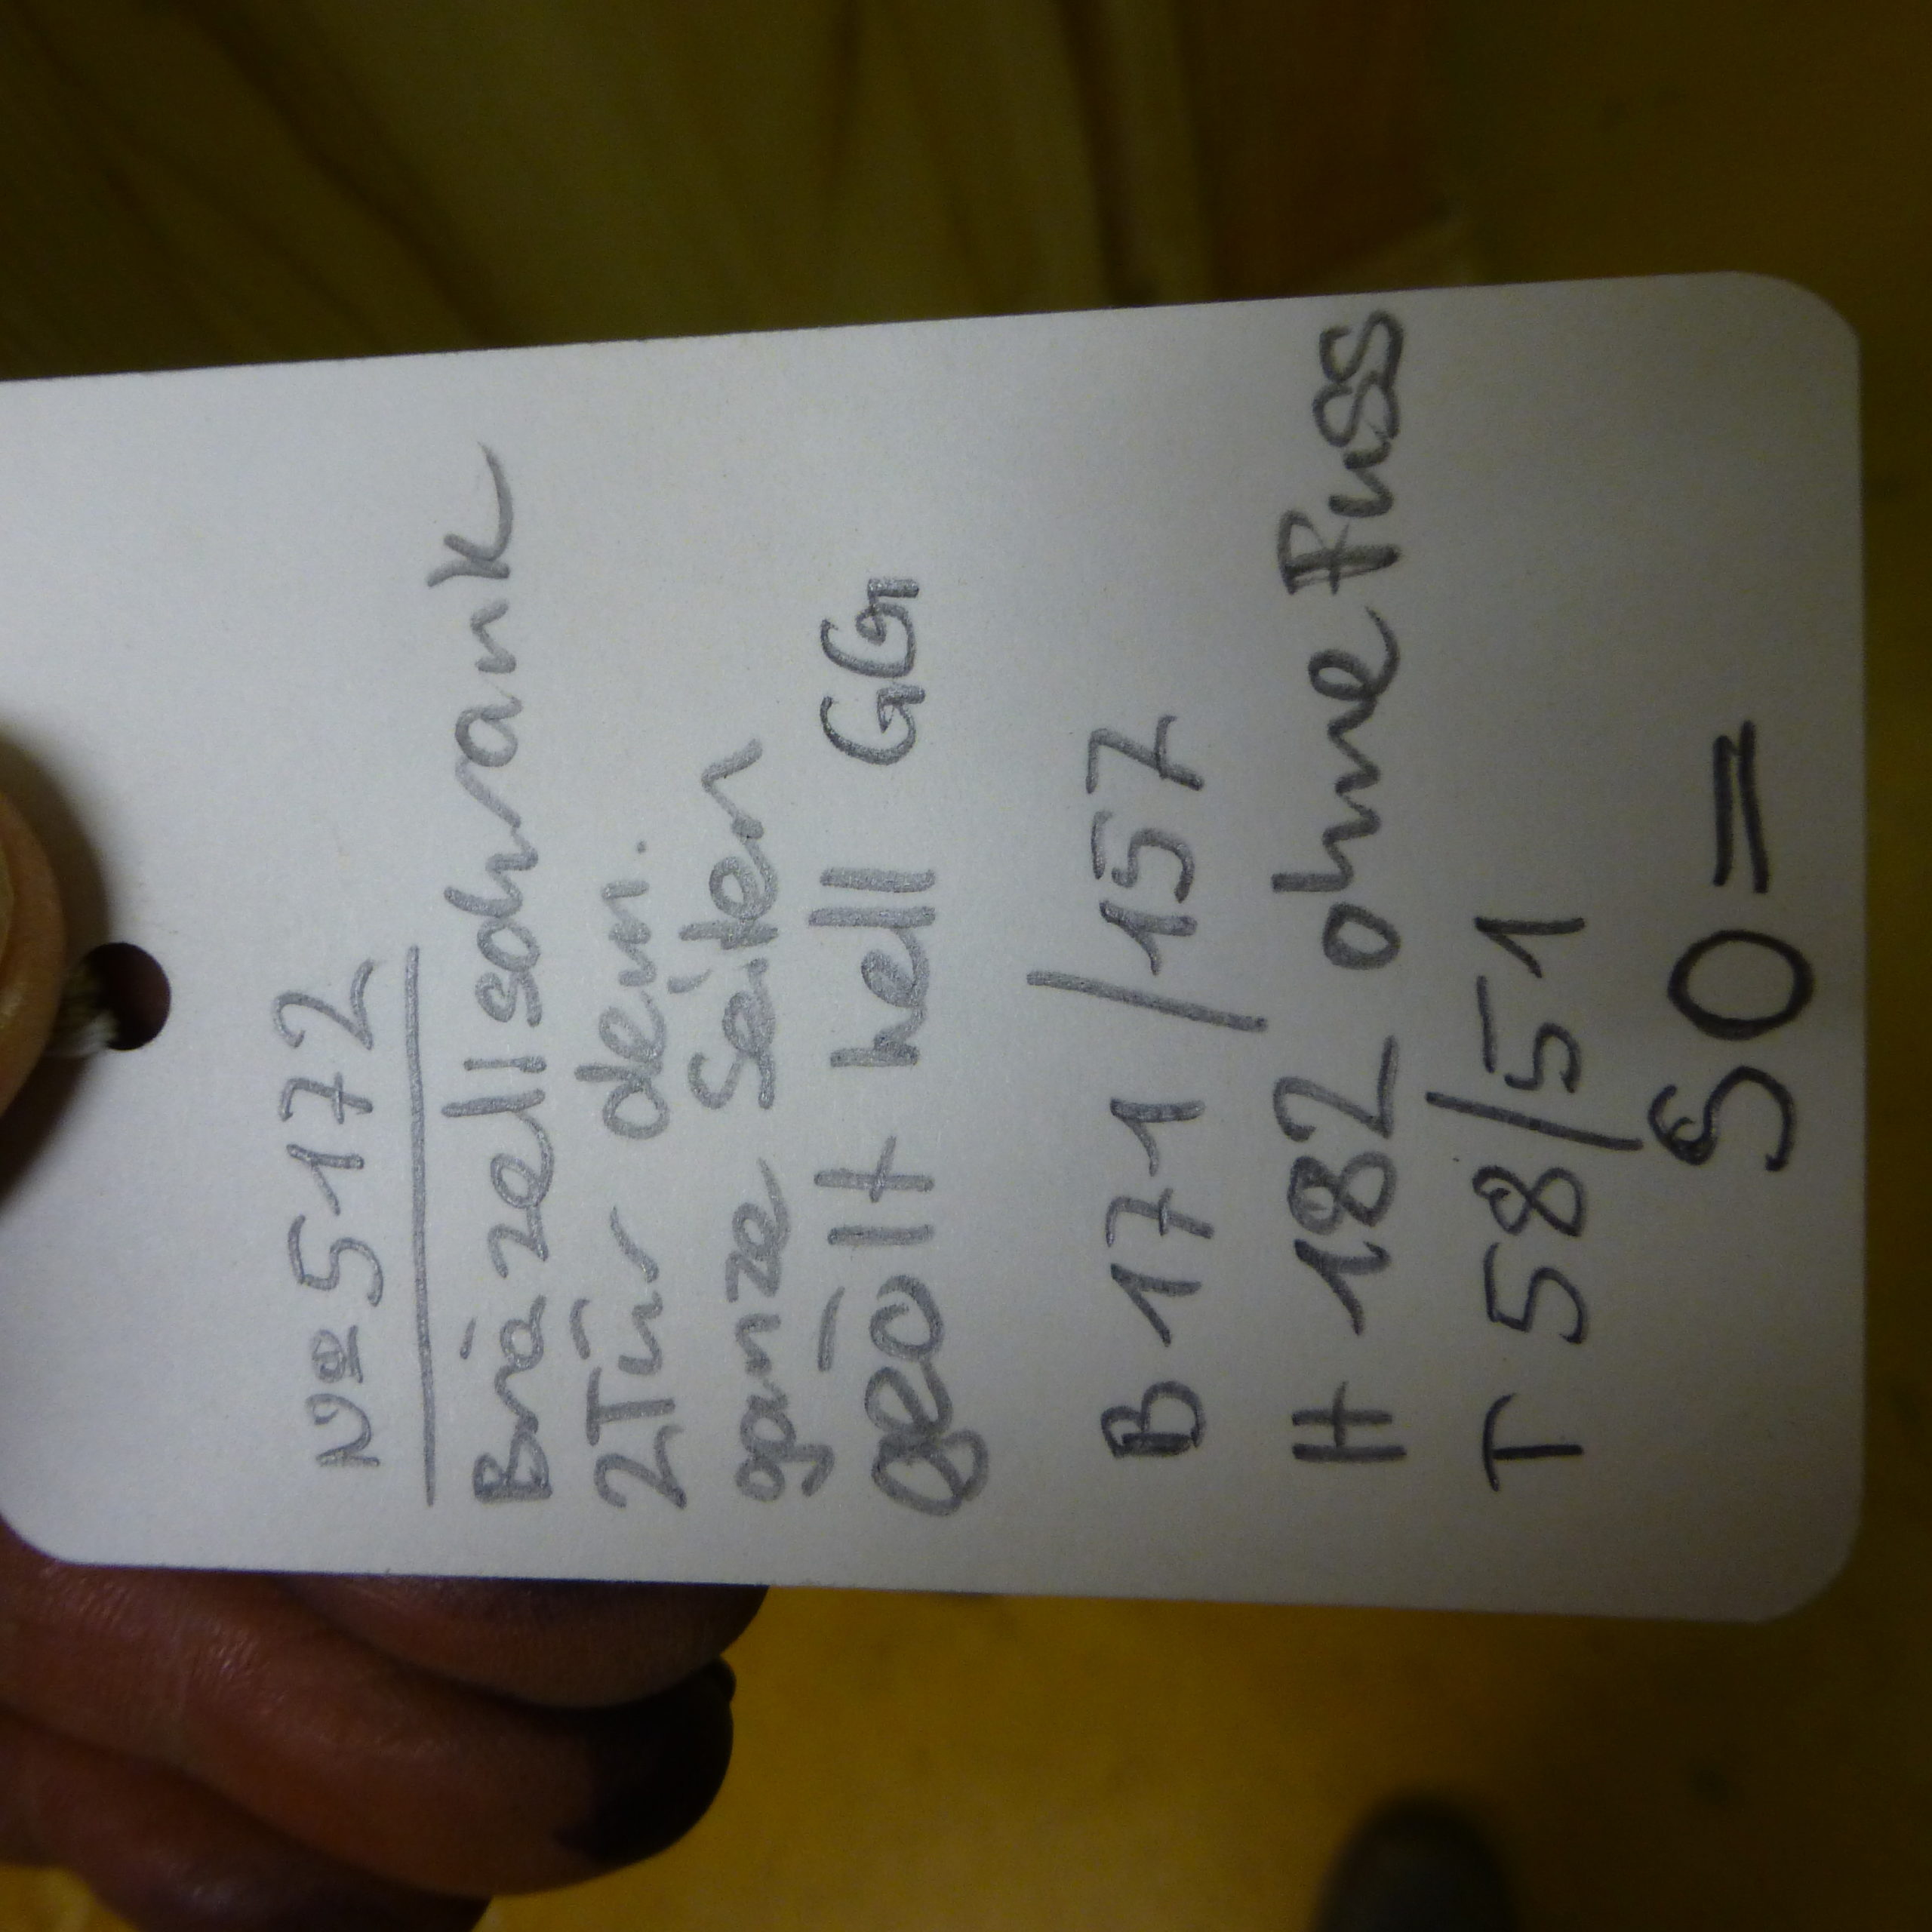 Nº 5172
Briazellschrank
2Tür dem.
ganze Seiten
geölt hell GG
B 171/157
H 182 ohne Fuss
T 58/51
50=